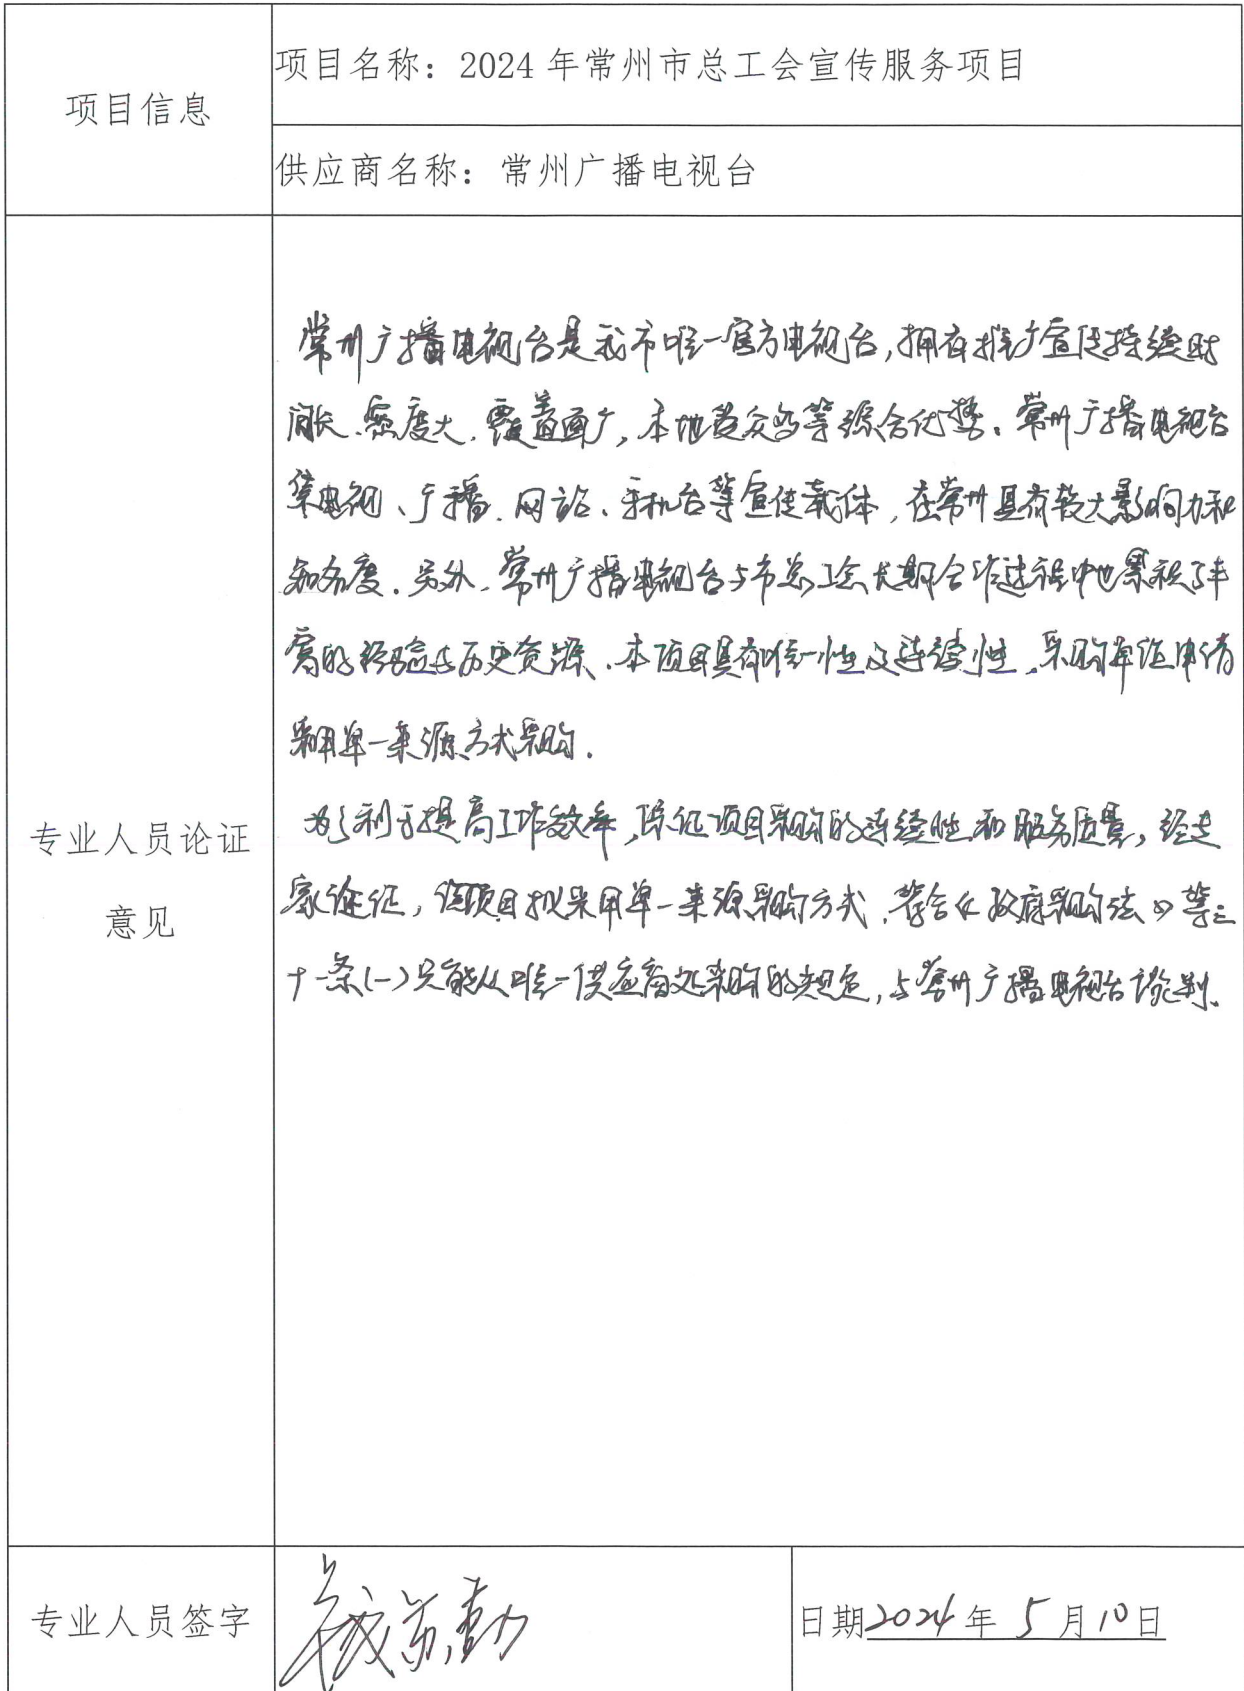 项目信息
项目名称：2024年常州市总工会宣传服务项目
供应商名称：常州广播电视台
专业人员论证
意见
常州广播电视台是我市唯一官方电视台，拥有推广宣传持续时
间长、密度大、覆盖面广，本地受众多等综合优势。常州广播电视台
集电视、广播、网站、手机台等宣传载体，在常州具有较大影响力和
知名度。另外，常州广播电视台与市总工会长期合作过程中也累积了丰
富的经验与历史资源、本项目具有唯一性及连续性，采购单位申请
采用单一来源方式采购.
为了利于提高工作效率，保证项目采购的连续性和服务质量，经专
家论证，该项目拟采用单一来源采购方式，符合《政府采购法》第三
十一条(一)只能从唯一供应商处采购的规定，与常州广播电视台谈判.
专业人员签字
日期2024年5月10日